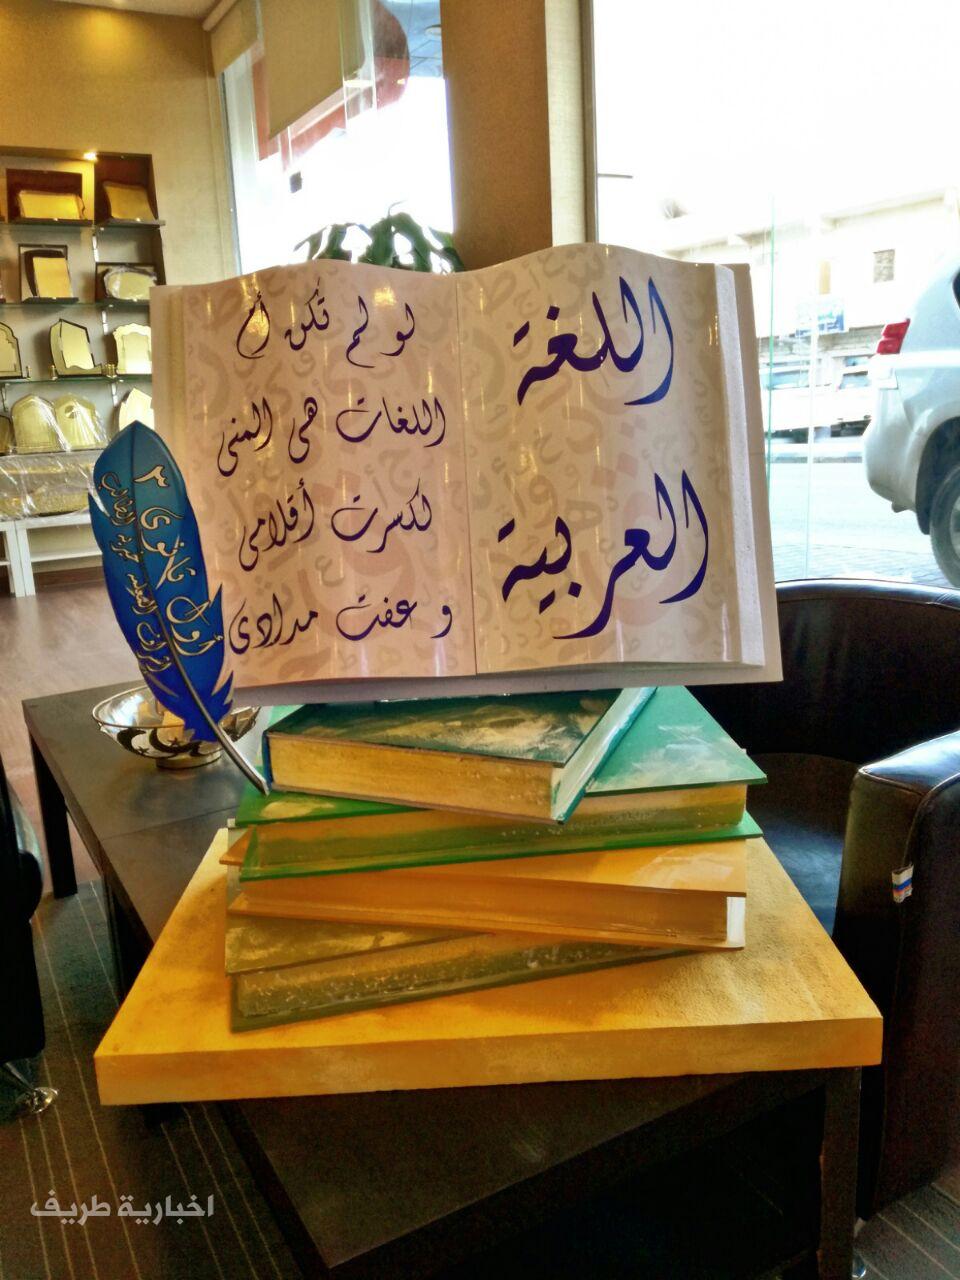 اللغة
العربية
لو لم تكن أم
اللغات هي المنى
لكسرت أقلامي
و عفت مدادي
أول ثانوي ٣
اخبارية طريف